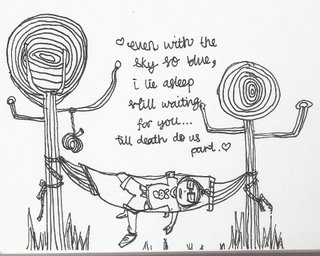 ♡ even with the
sky so blue,
i lie asleep
still waiting
for you...
till death do us
part. ♡